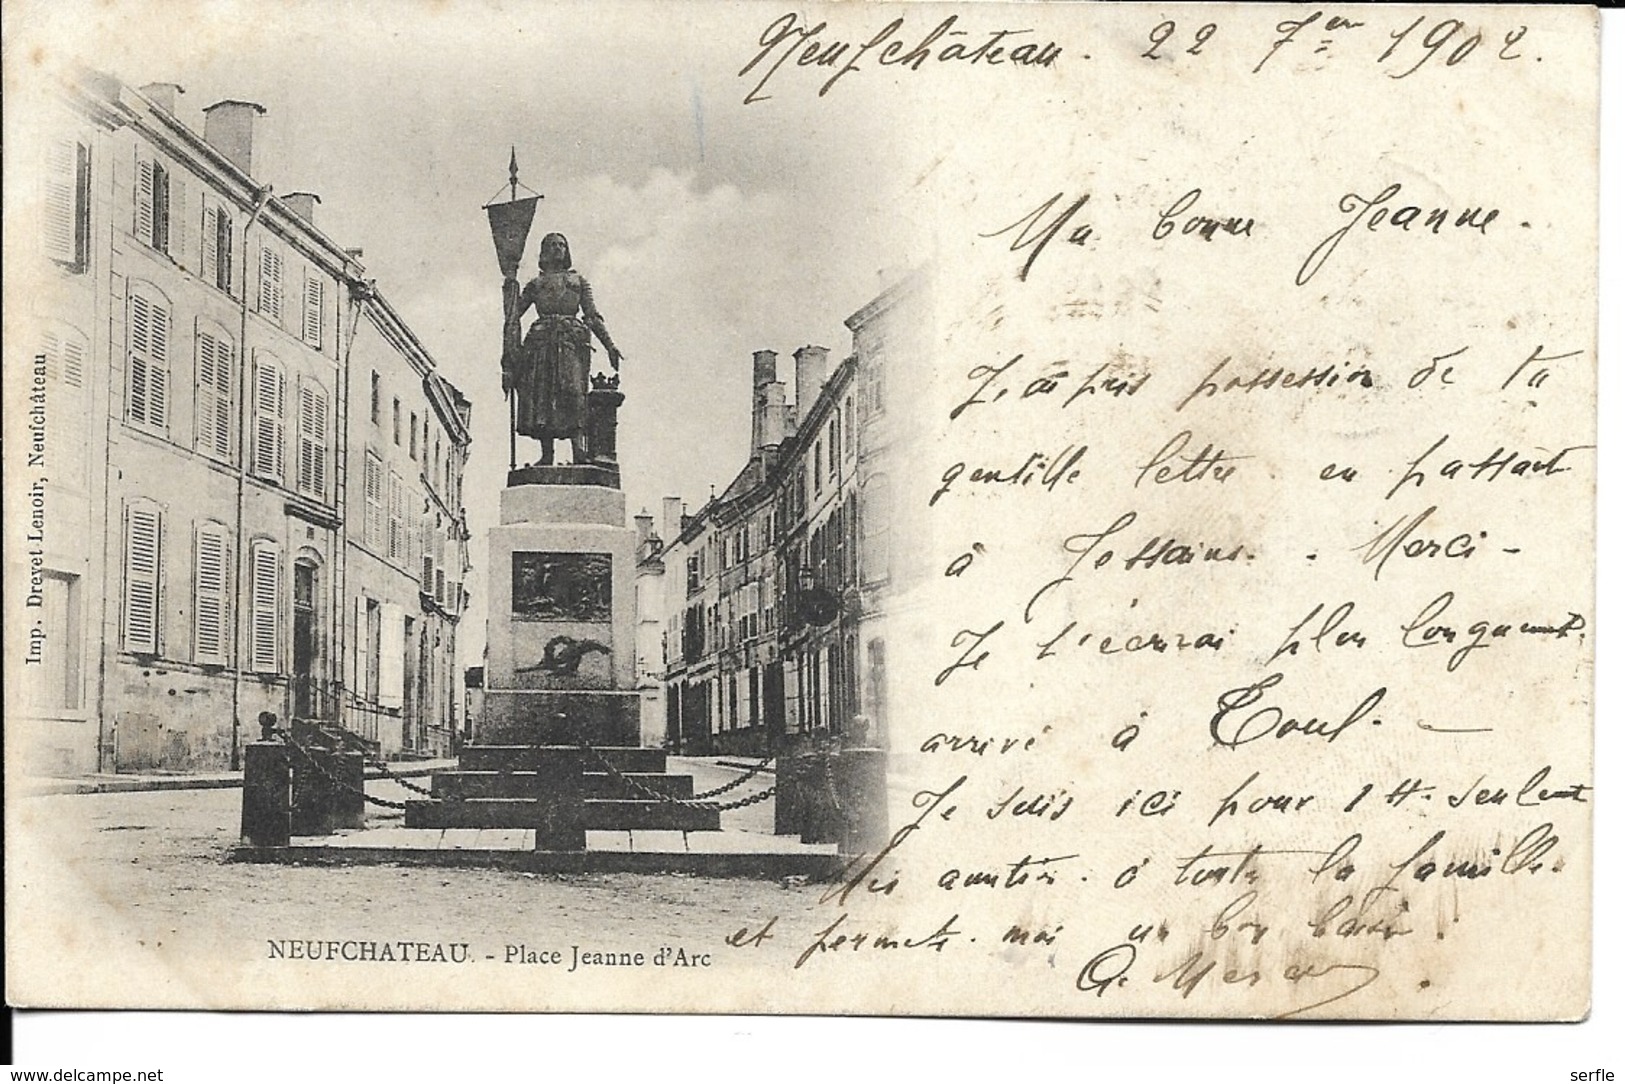 Neufchâteau. 22 7bre 1902.
Ma bonne Jeanne.
J'ai pris possession de ta
gentille lettre en passant
à Jossains. Merci -
Je t'écrirai plus longuement
arrivé à Toul. -
Je suis ici pour 1 H. seulement
Mes amitiés à toute la famille.
et permets-moi un bon baiser.
Imp. Drevet Lenoir, Neufchâteau
NEUFCHATEAU. - Place Jeanne d'Arc
www.delcampe.net
serfle